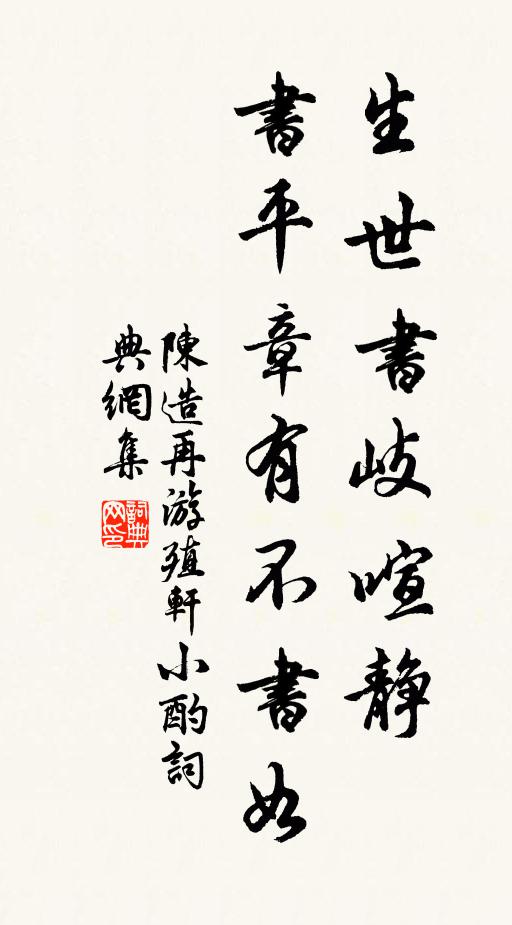 生世書岐喧静
書平章有不書如
陳造再游殖軒小酌詞
典網集
詞典网印